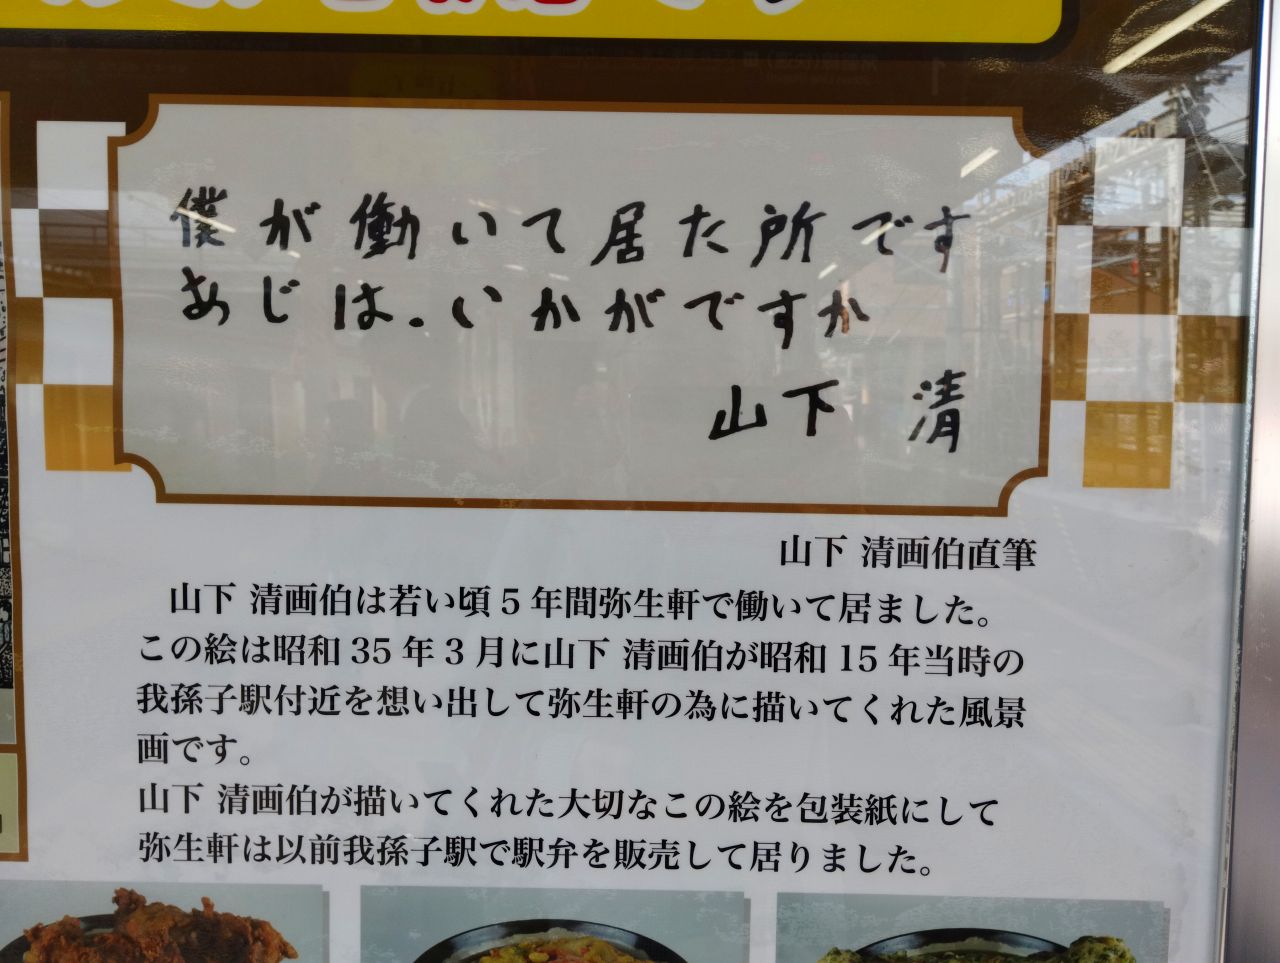 僕が働いて居た所です
あじは.いかがですか
山下 清
山下 清画伯直筆
山下 清画伯は若い頃5年間弥生軒で働いて居ました。
この絵は昭和35年3月に山下 清画伯が昭和15年当時の
我孫子駅付近を想い出して弥生軒の為に描いてくれた風景
画です。
山下 清画伯が描いてくれた大切なこの絵を包装紙にして
弥生軒は以前我孫子駅で駅弁を販売して居りました。